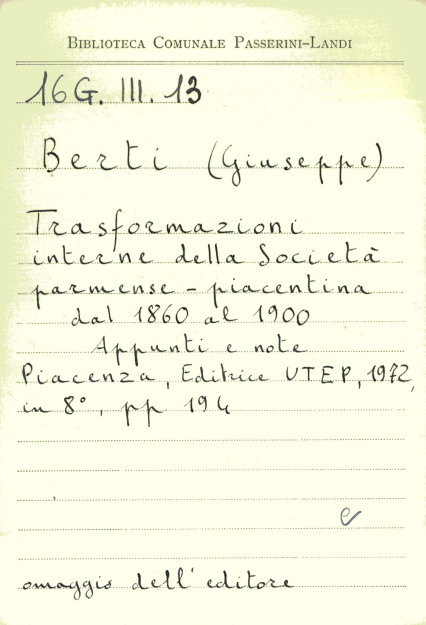 BIBLIOTECA COMUNALE PASSERINI-LANDI
16 G. III. 13
Berti (Giuseppe)
Trasformazioni
interne della Società
parmense - piacentina
dal 1860 al 1900
Appunti e note
Piacenza, Editrice UTEP, 1972,
in 8°, pp 194
e
omaggio dell'editore